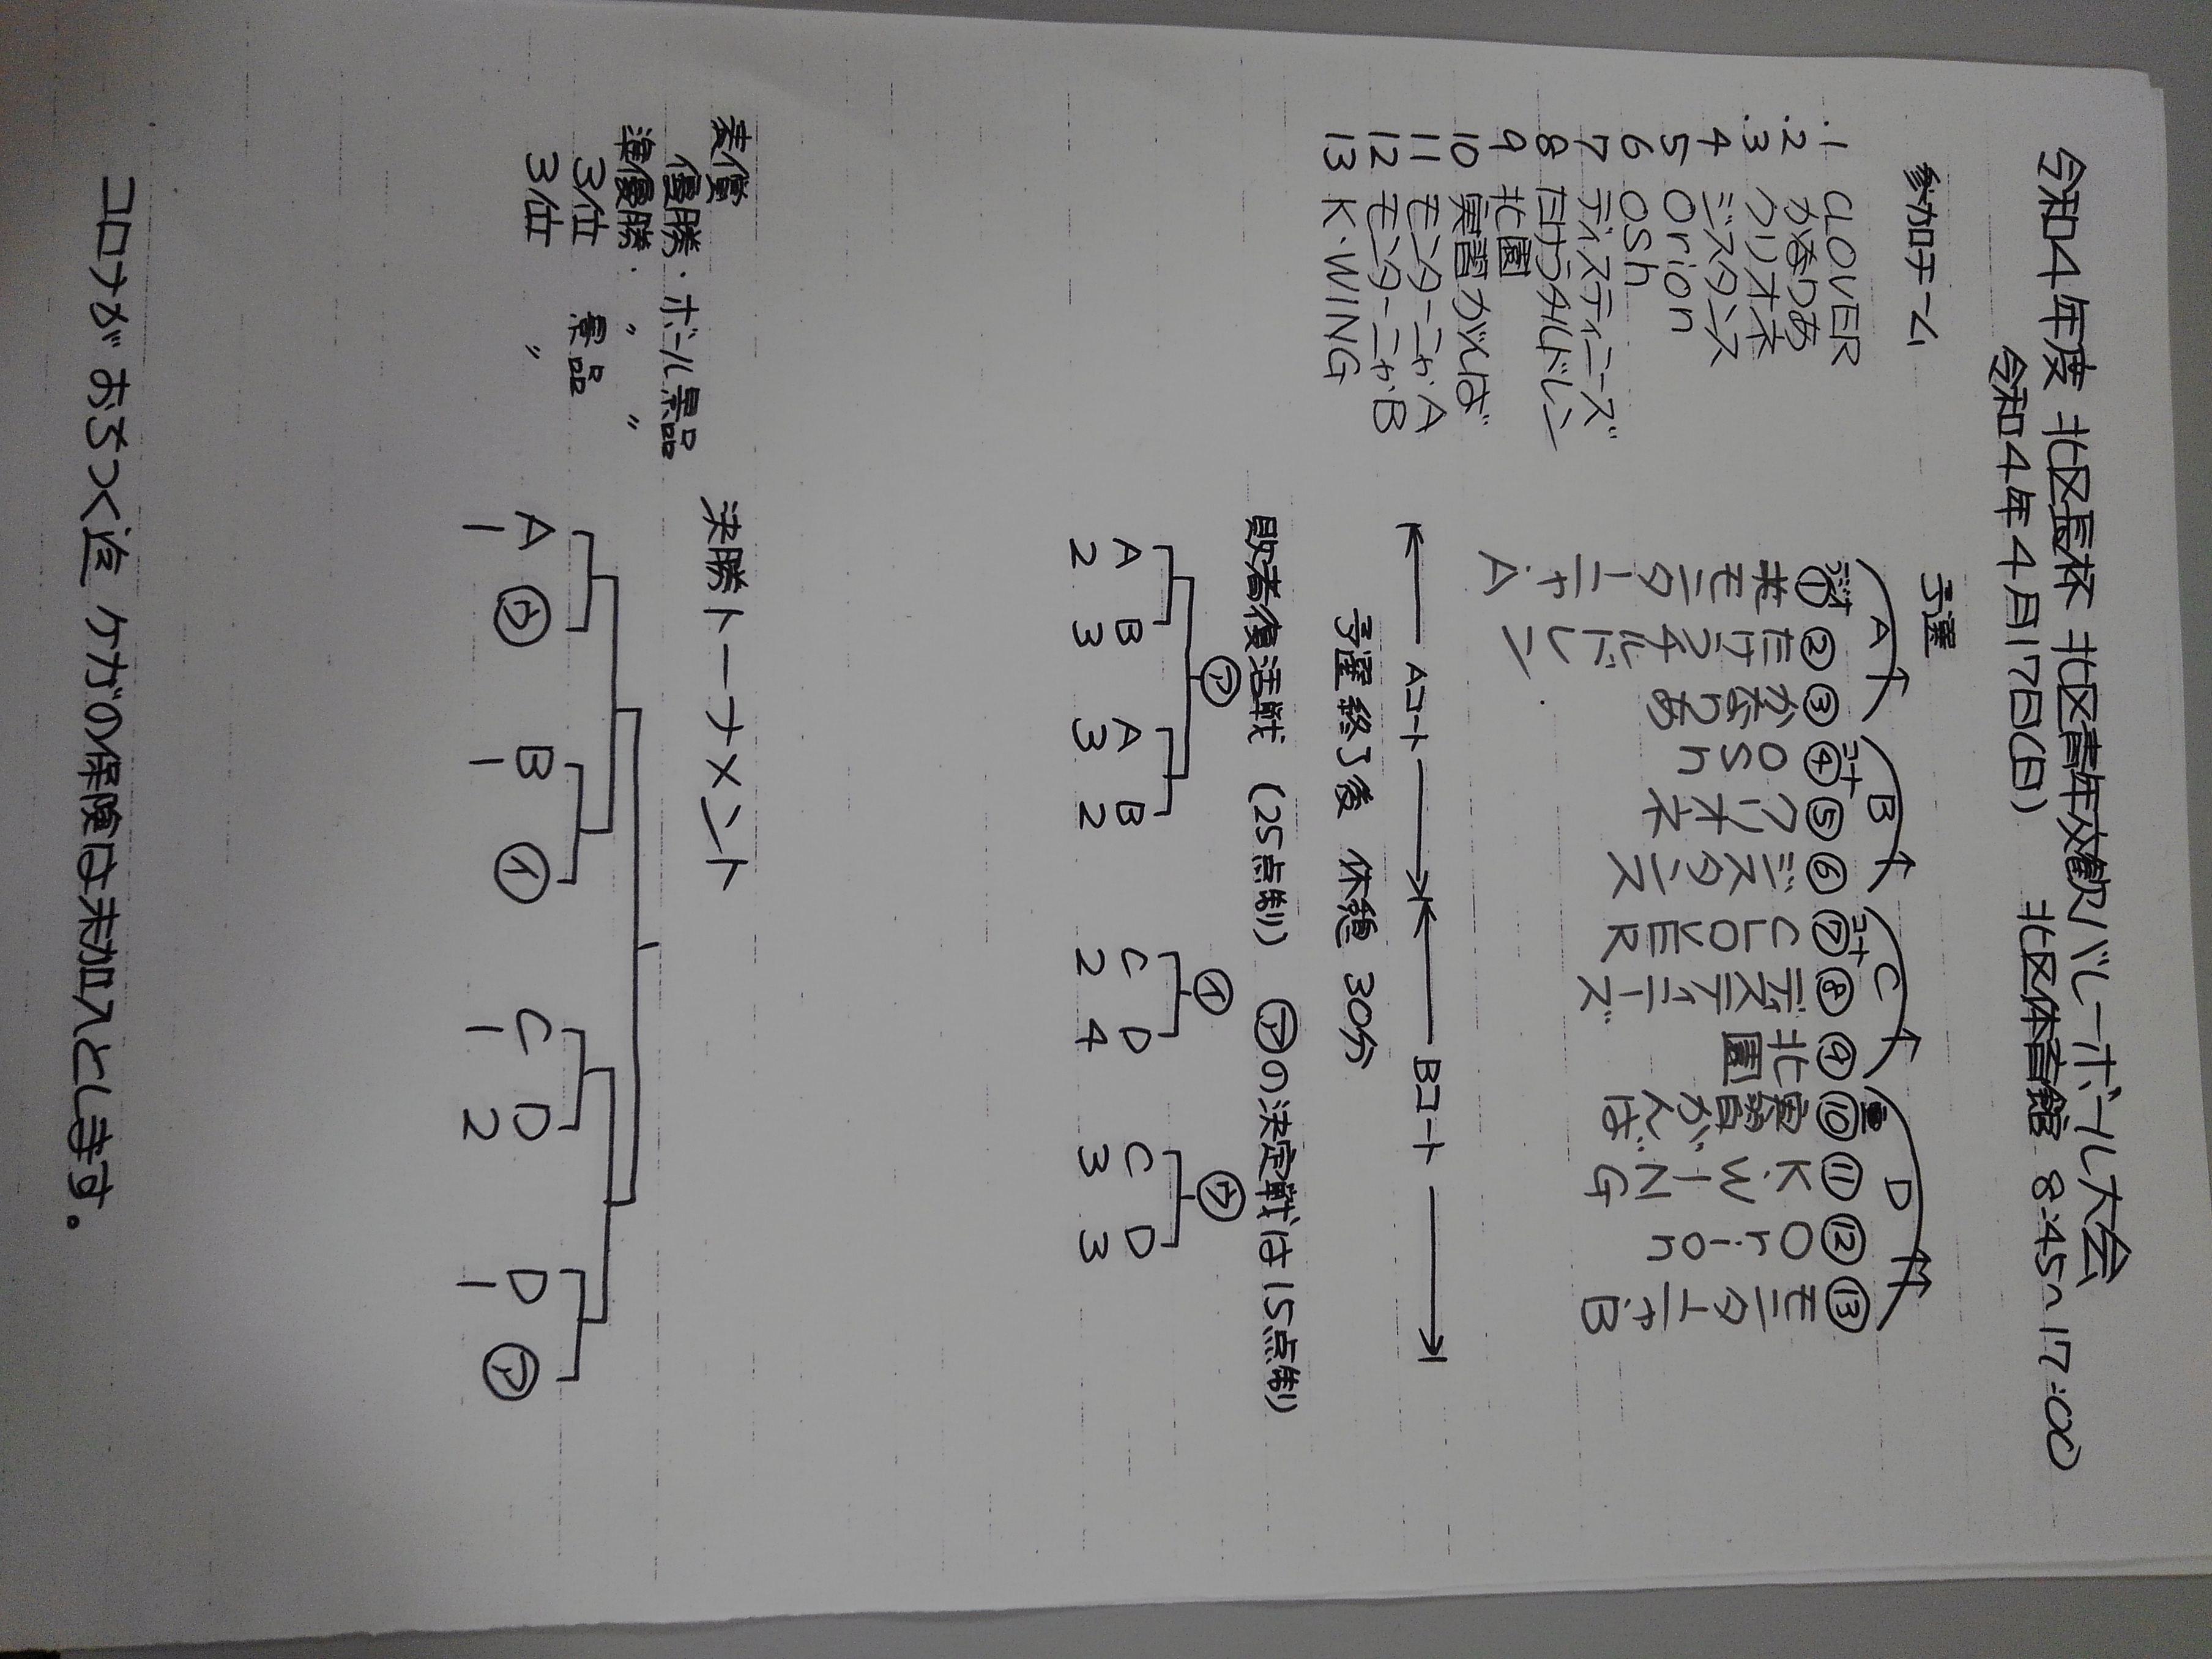 令和4年度 北区長杯 北区青年交歓バレーボール大会
令和4年4月17日(日) 北区体育館 8:45~17:00
参加チーム
.1 CLOVER
.2 かなりあ
.3 クリオネ
4 ミスタンス
5 Orion
6 Osh
7 ディスティニーズ
8 たけうチルドレン
9 北園
10 実習がんば
11 モンターニャ・A
12 モンターニャ・B
13 K・WING
予選
A B C D
① ② ③ ④ ⑤ ⑥ ⑦ ⑧ ⑨ ⑩ ⑪ ⑫ ⑬
モンターニャ・A
たけうチルドレン
かなりあ
Osh
クリオネ
ミスタンス
CLOVER
ディスティニーズ
北園
実習がんば
K・WING
Orion
モンターニャ・B
Aコート Bコート
予選終了後 休憩 30分
敗者復活戦 (25点制) ㋐の決定戦は15点制)
㋐ ㋑ ㋒
A B A B C D C D
2 3 3 2 2 4 3 3
表償
優勝・ボール景品
準優勝・ 〃 〃
3位 景品
3位 〃
決勝トーナメント
A ㋒ B ㋑ C D D ㋐
1 1 1 2 1
コロナが おちつく迄 ケガの保険は未加入とします。